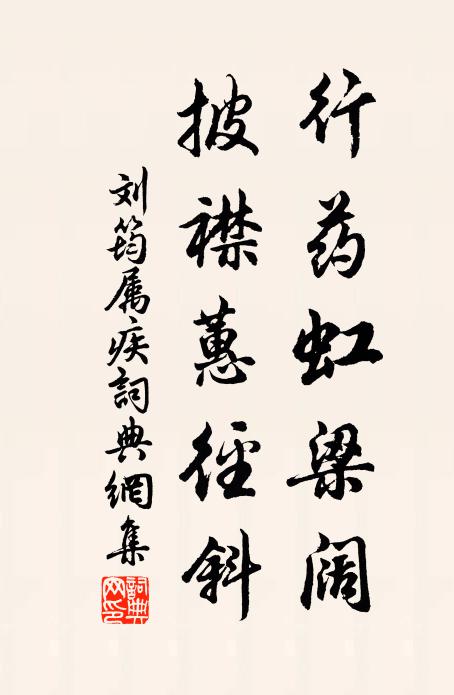 行药虹梁阔
披襟蕙径斜
刘筠属疾詞典網集
詞典网印